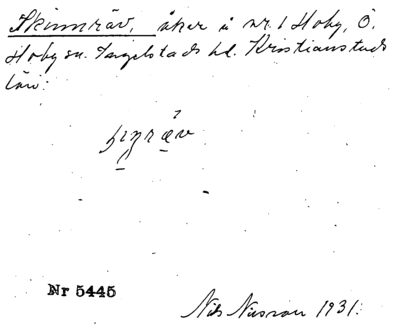 Skinnräv, åker å nr 1 Hoby, Ö.
Hoby sn. Ingelstads hd. Kristianstads
län.
Nr 5445
Nils Nilsson 1931.